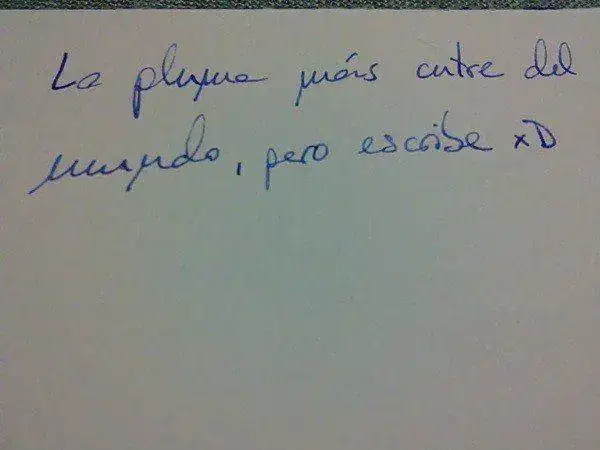 La pluma más cutre del
mundo, pero escribe xD